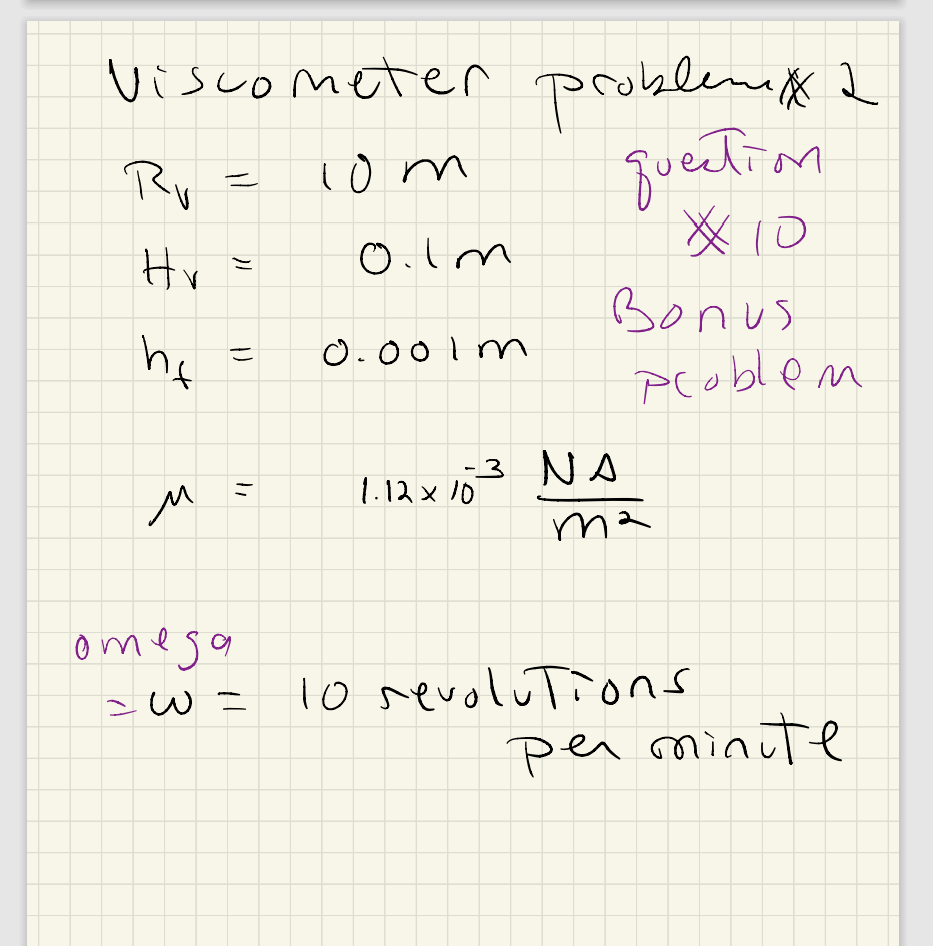 Viscometer problem # 2
question
# 10
Bonus
problem
R_v = 10 m
H_v = 0.1 m
h_f = 0.001 m
μ = 1.12 x 10^-3 N s / m^2
omega
= ω = 10 revolutions
per minute